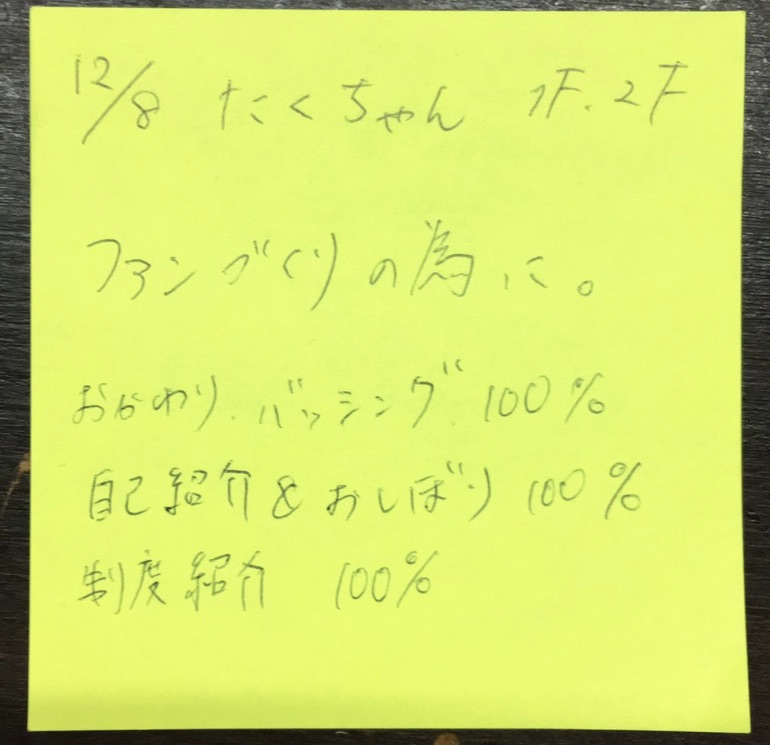 12/8 たくちゃん 1F. 2F
ファンづくりの為に。
おかわり.バッシング.100%
自己紹介&おしぼり 100%
制度紹介 100%